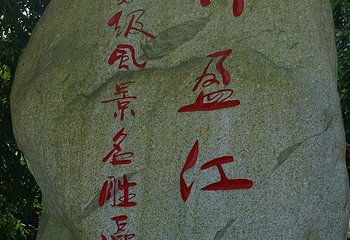 盈江
级风景名胜区